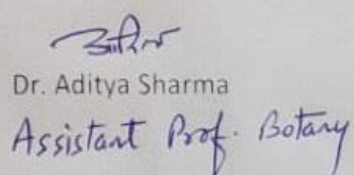 Dr. Aditya Sharma
Assistant Prof. Botany